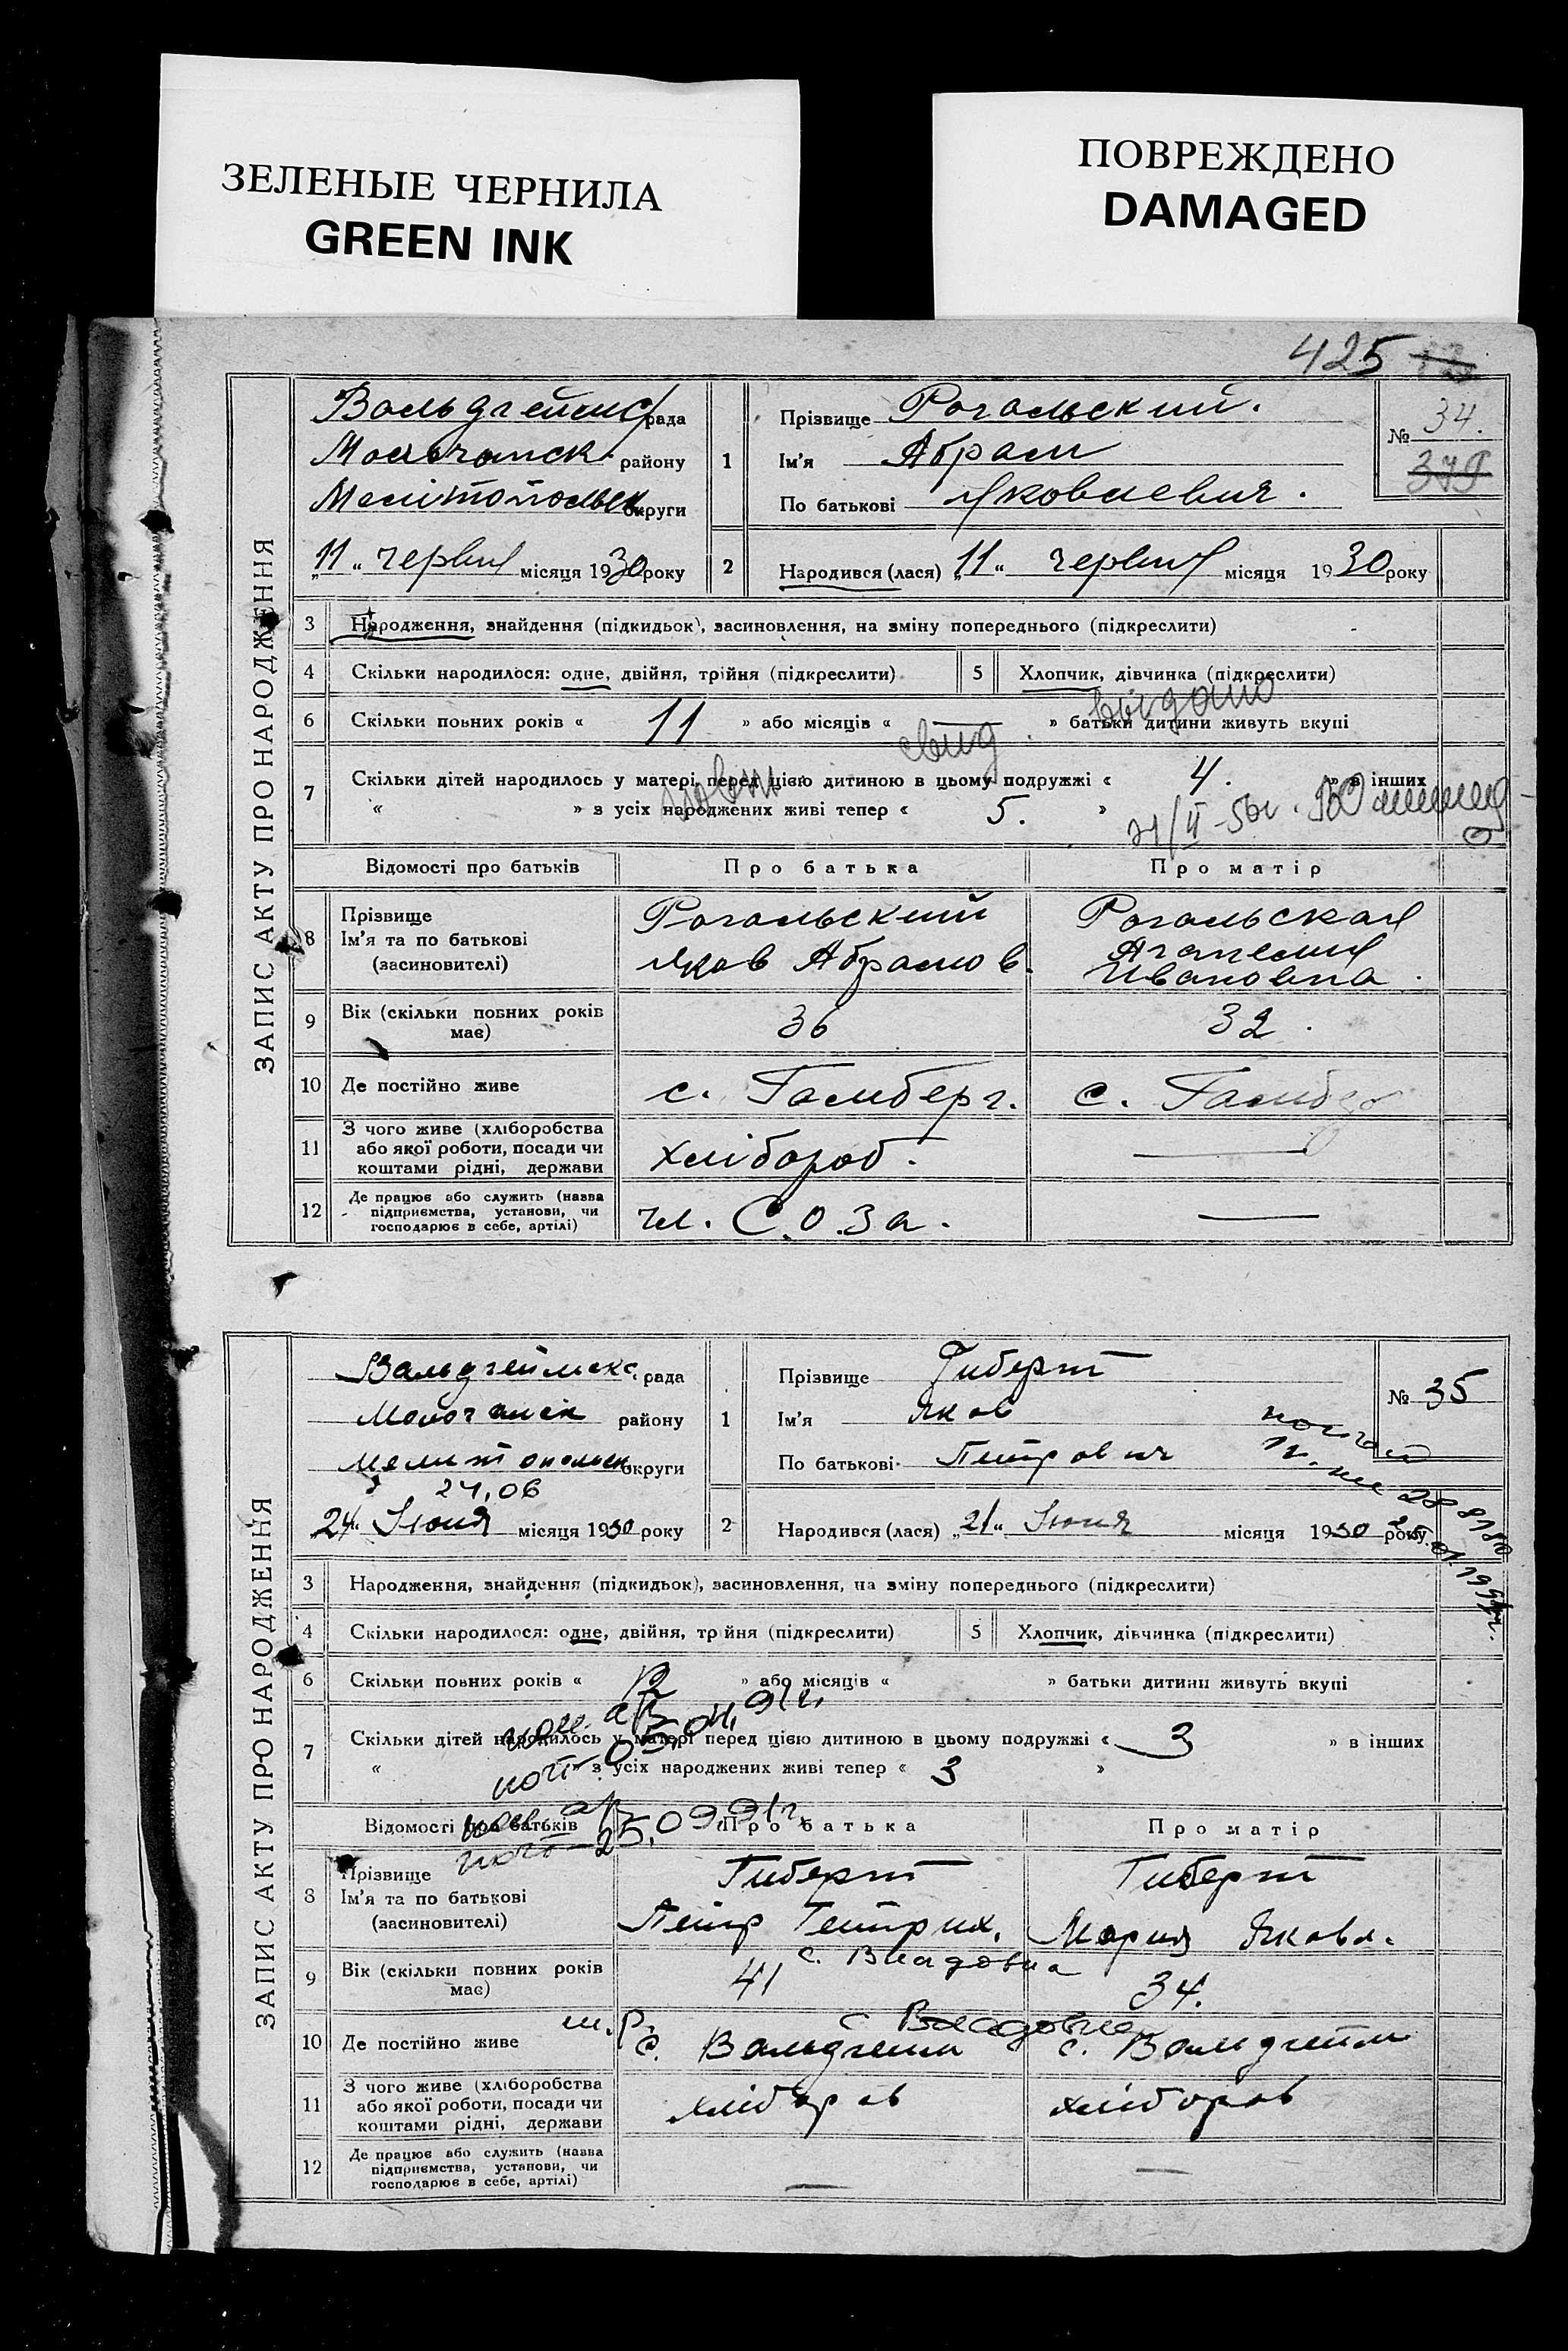 ЗЕЛЕНЫЕ ЧЕРНИЛА
GREEN INK
ПОВРЕЖДЕНО
DAMAGED
425
ЗАПИС АКТУ ПРО НАРОДЖЕННЯ
Вальдгеймс рада
Молочанск району
Мелітопольськ округи
„11“ червня місяця 1930 року
1
Прізвище Рогальский.
Ім'я Абрам
По батькові Яковлевич.
№ 34.
379
2
Народився (лася) „11“ червня місяця 1930 року
3 Народження, знайдення (підкидьок), засиновлення, на зміну попереднього (підкреслити)
4 Скільки народилося: одне, двійня, трійня (підкреслити)
5 Хлопчик, дівчинка (підкреслити)
6 Скільки повних років « 11 » або місяців « — » батьки дитини живуть вкупі
выдано
свид.
7 Скільки дітей народилось у матері перед цією дитиною в цьому подружжі « 4. » в інших
« » з усіх народжених живі тепер « 5. »
Відомості про батьків Про батька Про матір
8 Прізвище
Ім'я та по батькові
(засиновителі)
Рогальский
Яков Абрамов.
Рогальская
Ивановна.
9 Вік (скільки повних років має) 36 32.
10 Де постійно живе с. Гамберг. с. Гамбер
11 З чого живе (хліборобства
або якої роботи, посади чи
коштами рідні, держави
хлібороб. —
12 Де працює або служить (назва
підприємства, установи, чи
господарює в себе, артілі)
чл. С.О.За. —
ЗАПИС АКТУ ПРО НАРОДЖЕННЯ
Вальдгеймск. рада
Молочанск району
Мелитопольск округи
24.06
24 Июня місяця 1930 року
1
Прізвище Гиберт
Ім'я Яков
По батькові Петрович
№ 35
2
Народився (лася) „21“ Июня місяця 1930 року
3 Народження, знайдення (підкидьок), засиновлення, на зміну попереднього (підкреслити)
4 Скільки народилося: одне, двійня, трійня (підкреслити)
5 Хлопчик, дівчинка (підкреслити)
6 Скільки повних років « 12 » або місяців « » батьки дитини живуть вкупі
7 Скільки дітей народилось у матері перед цією дитиною в цьому подружжі « 3 » в інших
« » з усіх народжених живі тепер « 3 »
05.04.91г.
25.09.91г.
Відомості про батьків Про батька Про матір
8 Прізвище
Ім'я та по батькові
(засиновителі)
Гиберт
Петр Генрих.
Гиберт
Мария Яковл.
9 Вік (скільки повних років має) 41 34.
с. Владовка
10 Де постійно живе с. Вальдгейм с. Вальдгейм
м.р. с. Владовка
11 З чого живе (хліборобства
або якої роботи, посади чи
коштами рідні, держави
хлібороб хлібороб
12 Де працює або служить (назва
підприємства, установи, чи
господарює в себе, артілі)
— —